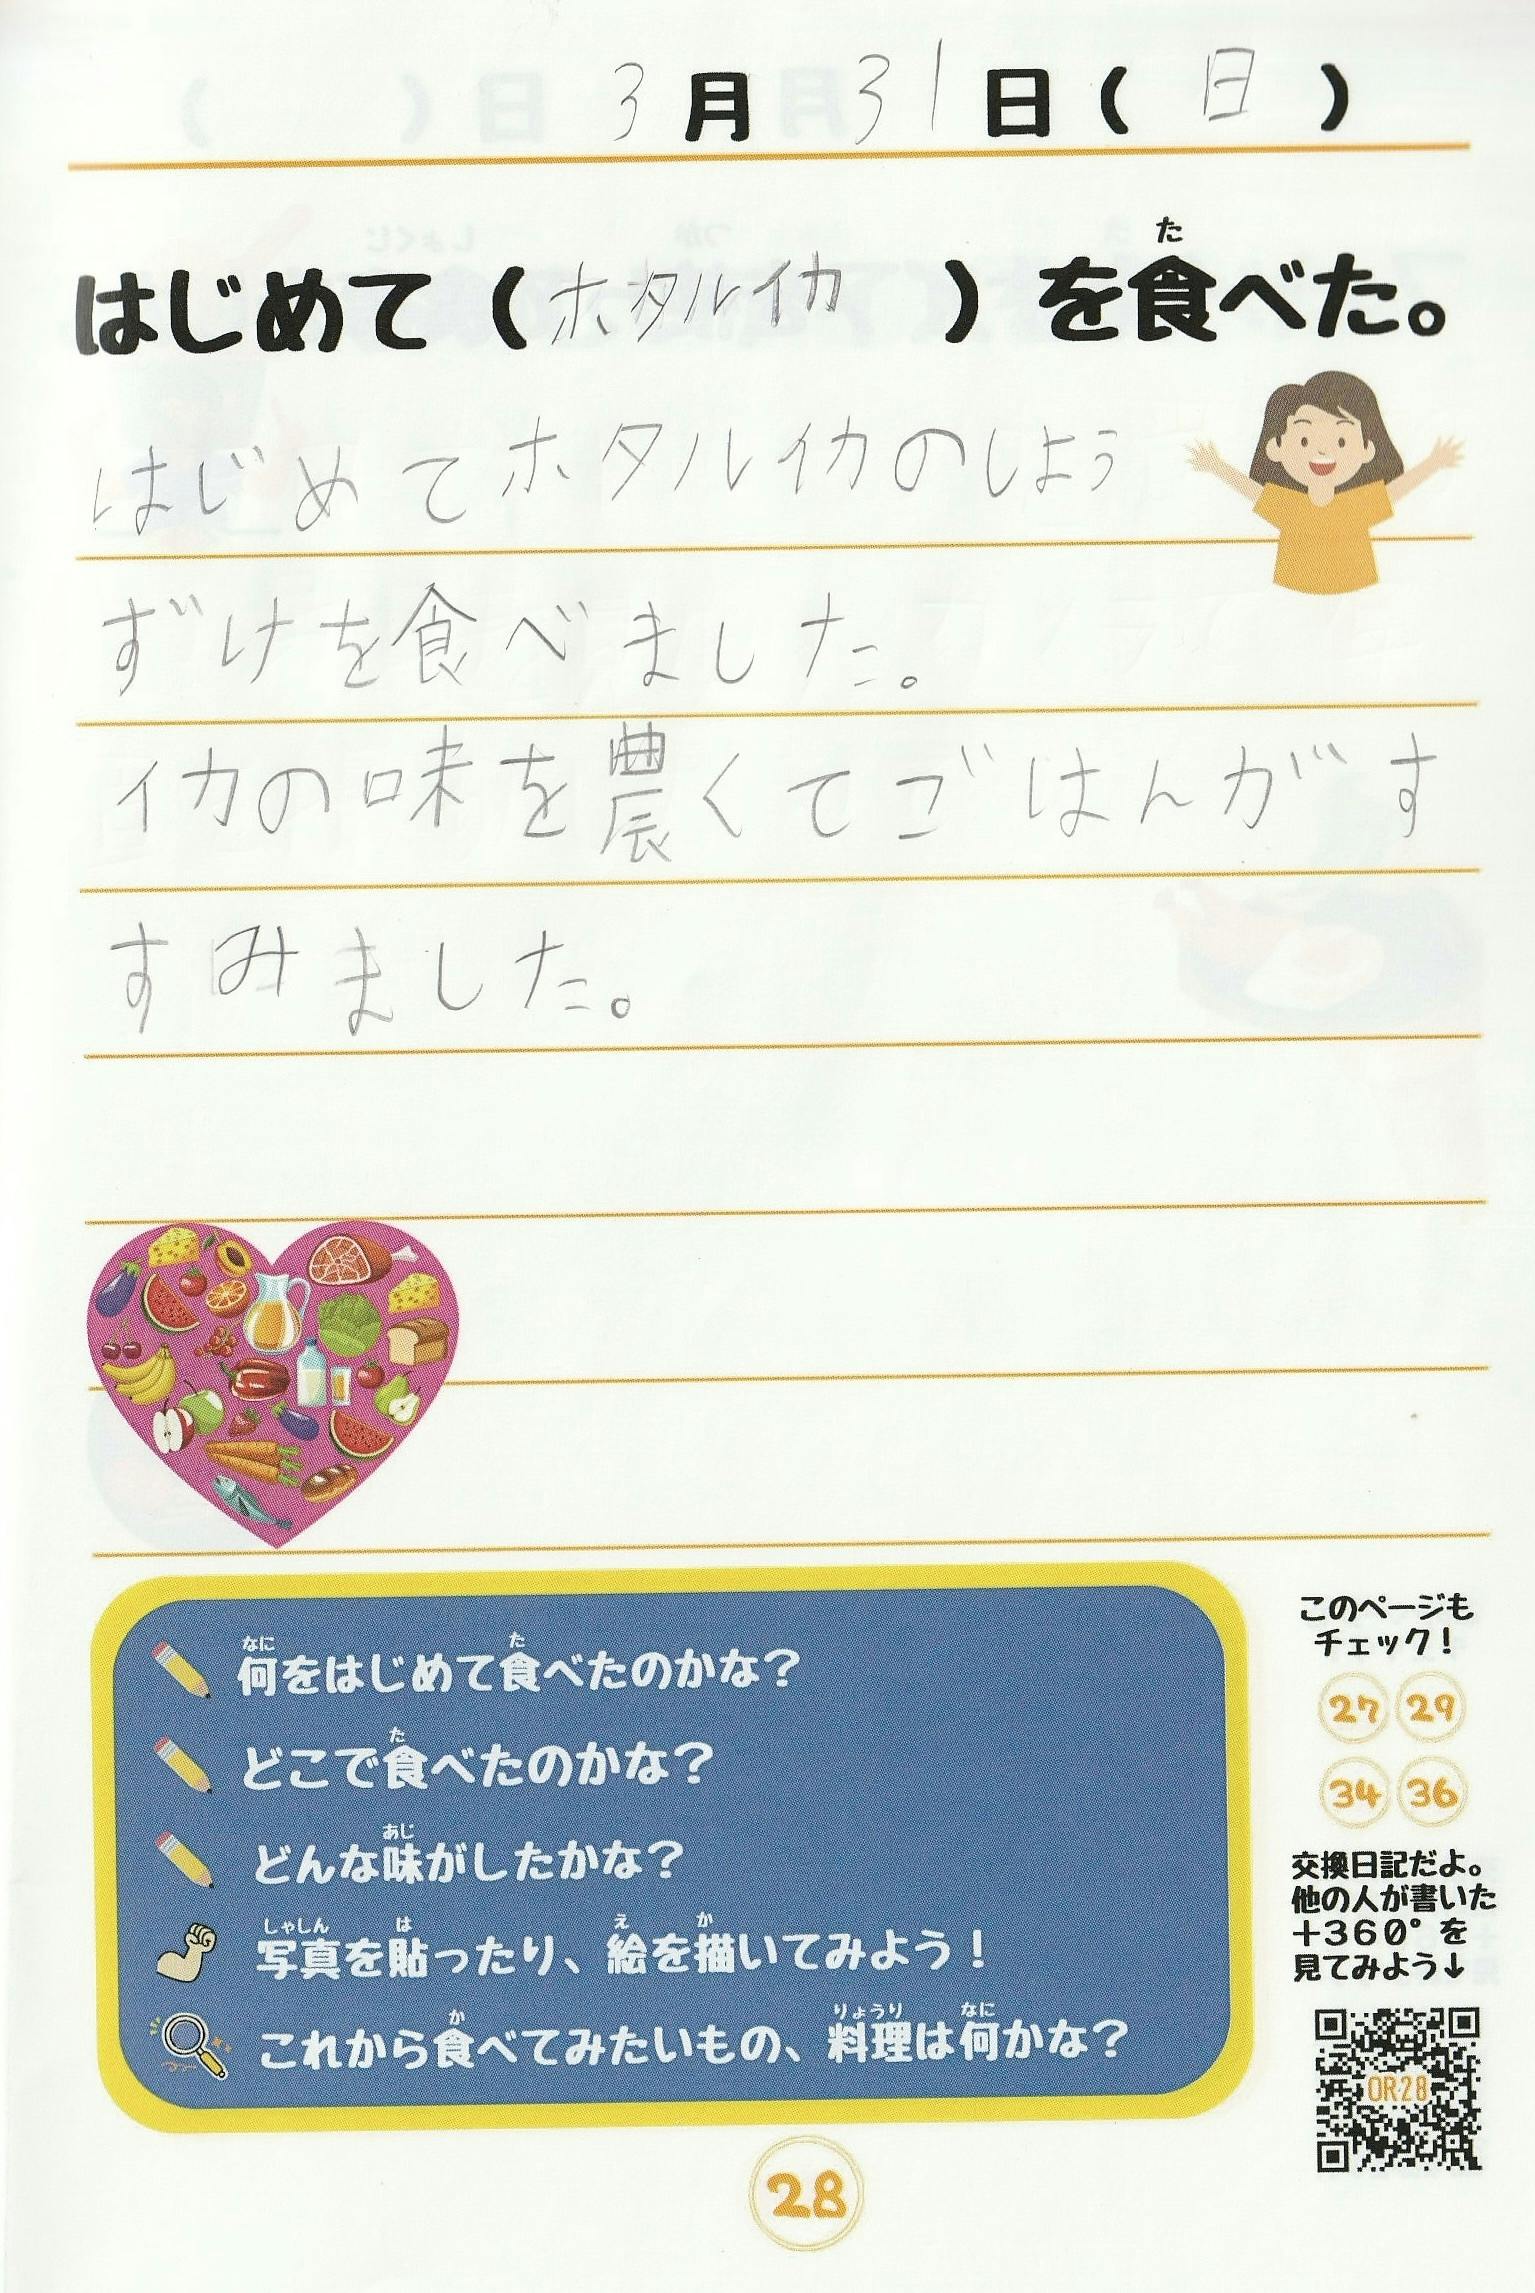 3月31日(日)
た
はじめて(ホタルイカ)を食べた。
はじめてホタルイカのしょう
ずけを食べました。
イカの味を濃くてごはんがす
すみました。
なに た
何をはじめて食べたのかな?
た
どこで食べたのかな?
あじ
どんな味がしたかな?
しゃしん は え か
写真を貼ったり、絵を描いてみよう!
か りょうり なに
これから食べてみたいもの、料理は何かな?
このページも
チェック!
27 29
34 36
交換日記だよ。
他の人が書いた
+360°を
見てみよう↓
OR-28
28